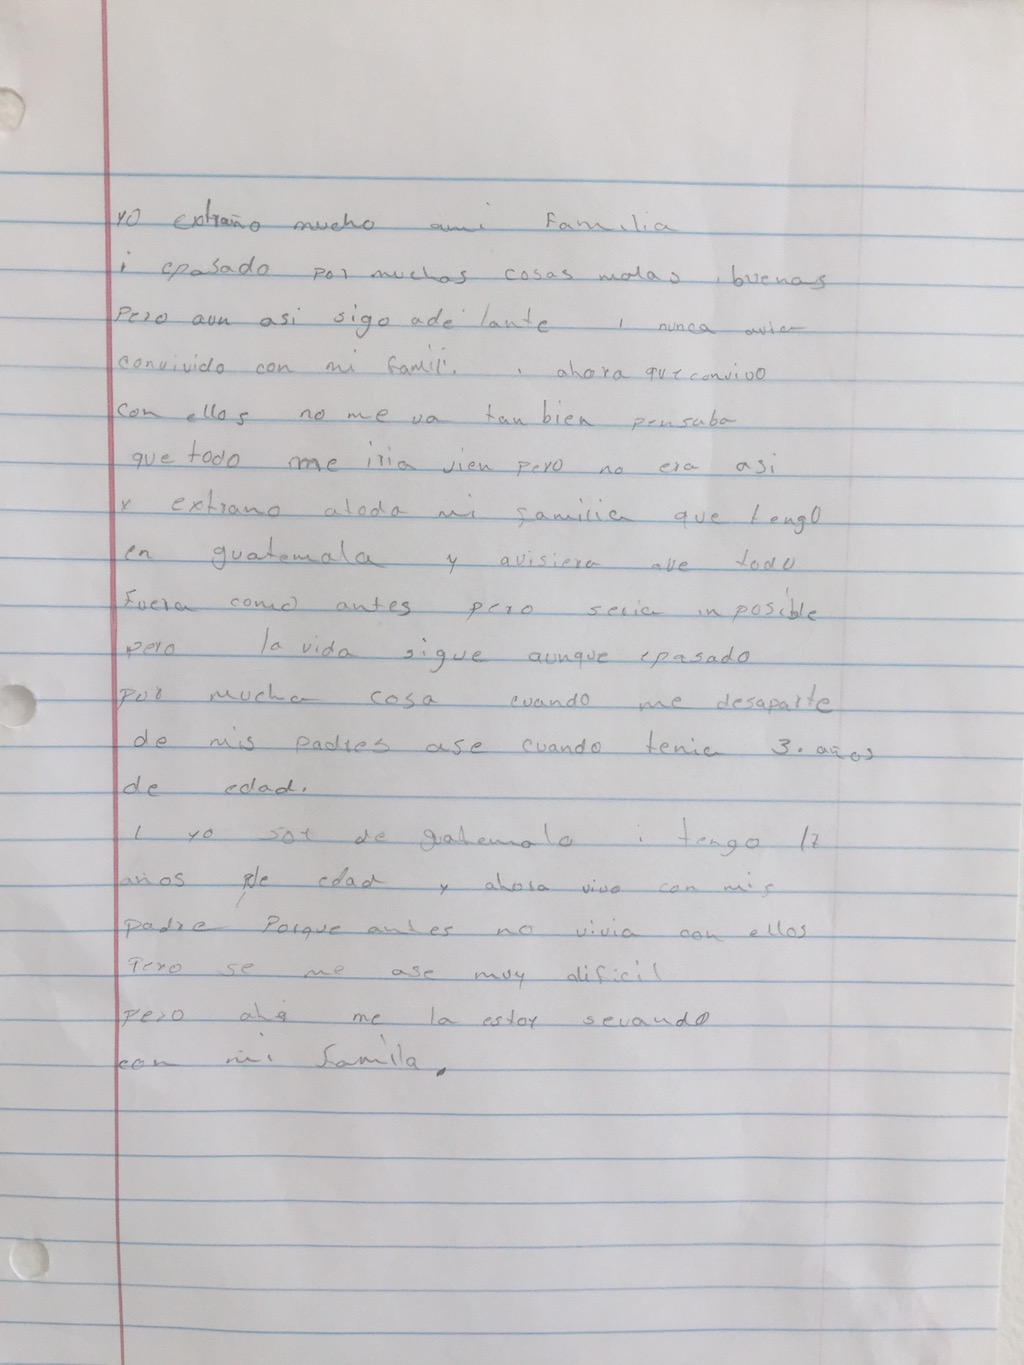 yo extraño mucho ami familia
i epasado por muchas cosas malas i buenas
pero aun asi sigo ade lante i nunca avia
convivido con mi famili. i ahora que convivo
con ellos no me va tan bien pensaba
que todo me iria vien pero no era asi
y extrano atoda mi familia que tengo
en guatemala y quisiera que todo
fuera como antes pero seria in posible
pero la vida sigue aunque epasado
por mucha cosa cuando me desaparte
de mis padres ase cuando tenia 3. años
de edad.
i yo soy de gatemala i tengo 17
años de edad y ahora vivo con mis
padre Porque antes no vivia con ellos
Pero se me ase muy dificil
pero ahi me la estoy sevando
con mi familа.